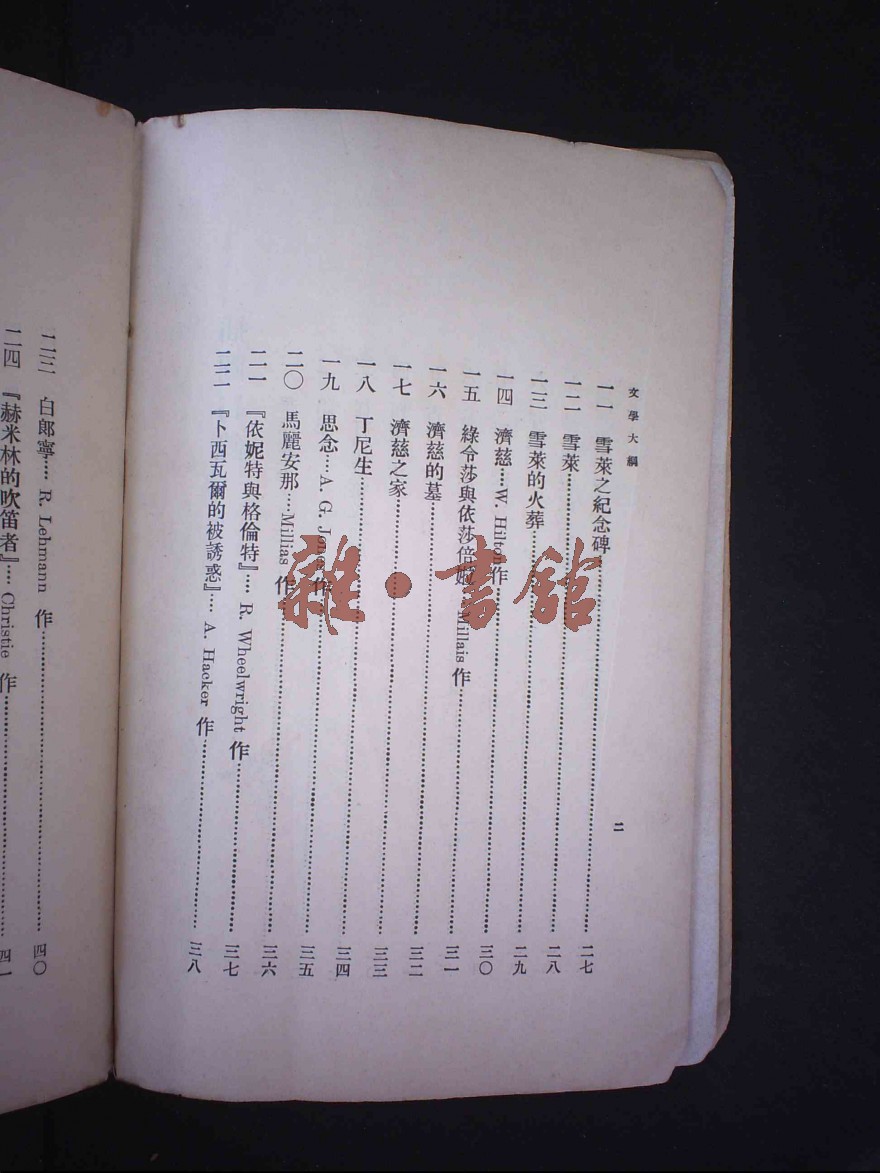 文學大綱
二
一一 雪萊之紀念碑……二七
一二 雪萊……二八
一三 雪萊的火葬……二九
一四 濟慈…… W. Hilton 作……三〇
一五 綠令莎與依莎倍妮…… Millais 作……三一
一六 濟慈的墓……三二
一七 濟慈之家……三三
一八 丁尼生……三四
一九 思念…… A. G. Jones 作……三五
二〇 馬麗安那…… Millias 作……三六
二一 『依妮特與格倫特』…… R. Wheelwright 作……三七
二二 『卜西瓦爾的被誘惑』…… A. Hacker 作……三八
二三 白郎寧…… R. Lehmann 作……四〇
二四 『赫米林的吹笛者』…… Christie 作……四一
雜·書館